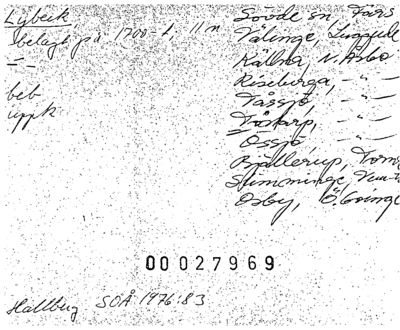 Lybeik
belagt på 1700-t, 11 m
— " —
beb
uppk
Sövde sn, Färs
Välinge, Luggude
Källna, N. Åsbo
Riseberga, — " —
Tåssjö, — " —
Tostarp, — " —
Össjö, — " —
Bjällerup, Torna
Stimminge, Vem
Osby, Ö. Göinge
00 027969
Hallberg SOÅ 1976:83